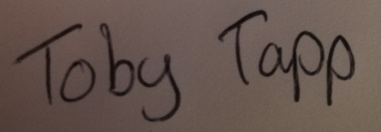 Toby Tapp